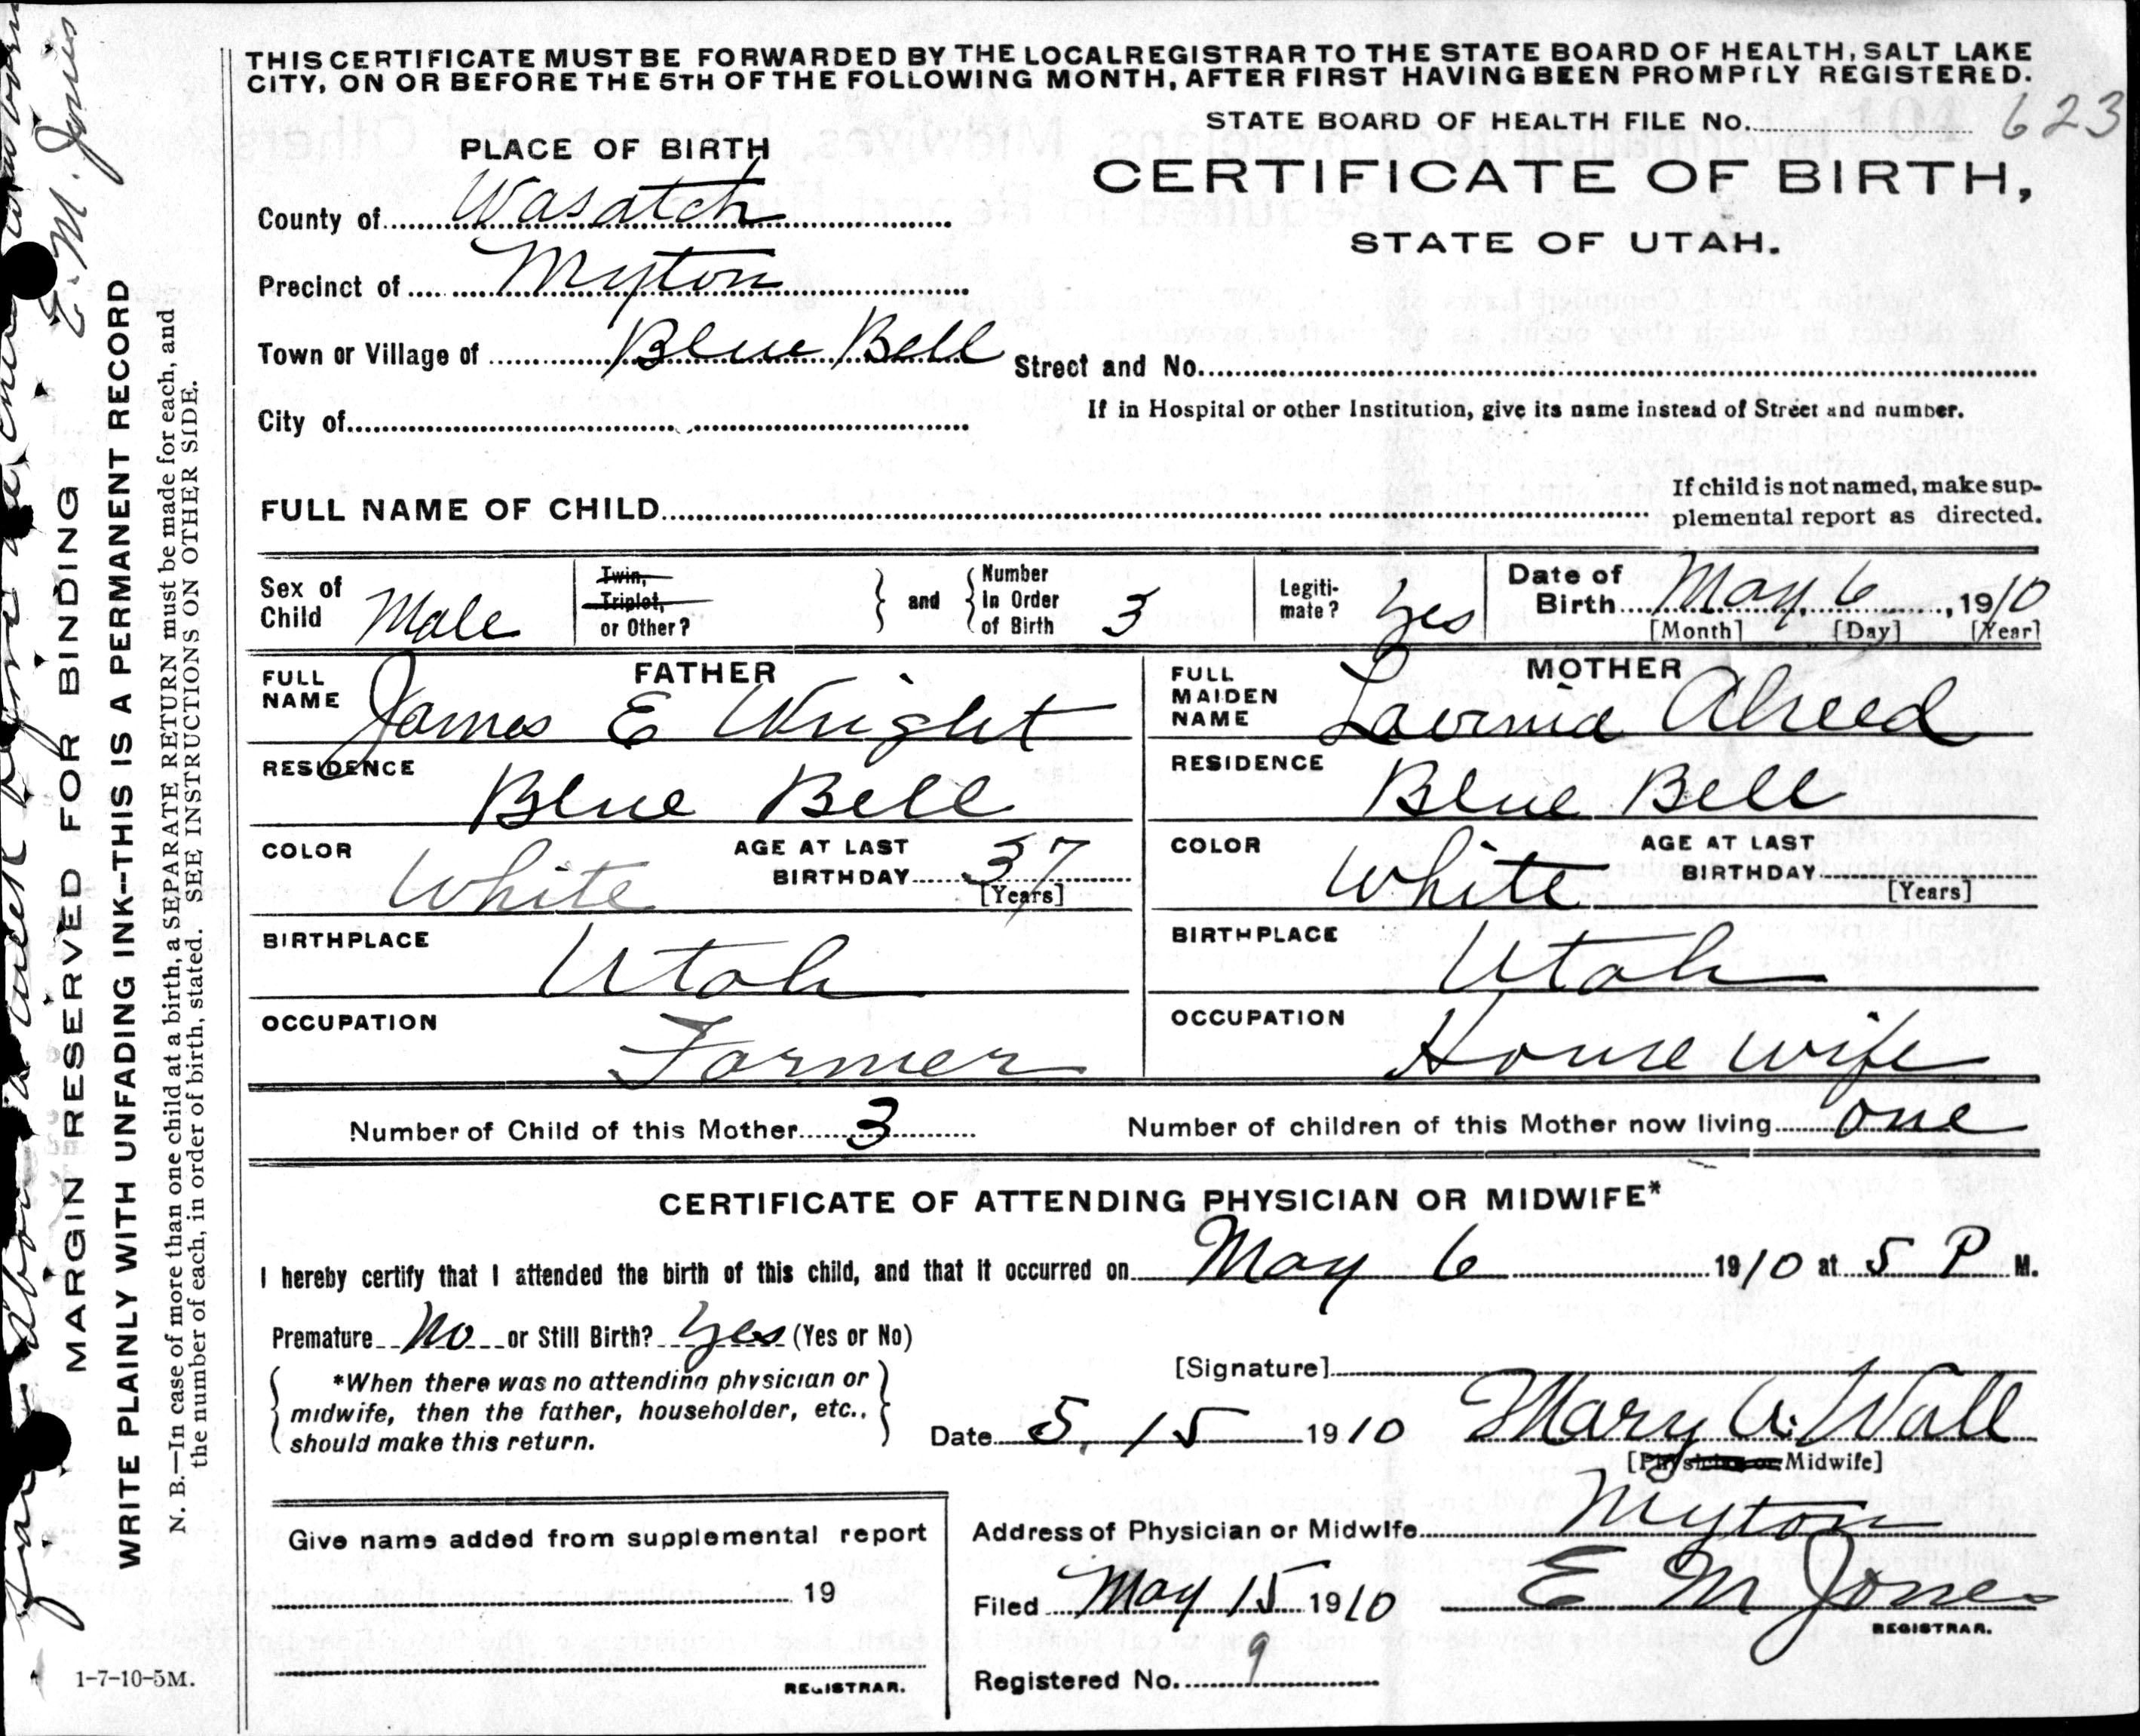 THIS CERTIFICATE MUST BE FORWARDED BY THE LOCAL REGISTRAR TO THE STATE BOARD OF HEALTH, SALT LAKE
CITY, ON OR BEFORE THE 5TH OF THE FOLLOWING MONTH, AFTER FIRST HAVING BEEN PROMPTLY REGISTERED.
STATE BOARD OF HEALTH FILE No. 623
PLACE OF BIRTH
CERTIFICATE OF BIRTH,
STATE OF UTAH.
County of Wasatch
Precinct of Myton
Town or Village of Blue Bell
Street and No.
City of
If in Hospital or other Institution, give its name instead of Street and number.
FULL NAME OF CHILD
If child is not named, make sup-
plemental report as directed.
Sex of Child Male
Twin,
Triplet,
or Other?
and
Number
In Order
of Birth 3
Legiti-
mate? Yes
Date of
Birth May, 6, 1910
[Month] [Day] [Year]
FATHER
FULL NAME James E Wright
RESIDENCE Blue Bell
COLOR White
AGE AT LAST BIRTHDAY 37
[Years]
BIRTHPLACE Utah
OCCUPATION Farmer
MOTHER
FULL MAIDEN NAME Lavinia Alreed
RESIDENCE Blue Bell
COLOR White
AGE AT LAST BIRTHDAY
[Years]
BIRTHPLACE Utah
OCCUPATION House wife
Number of Child of this Mother 3
Number of children of this Mother now living one
CERTIFICATE OF ATTENDING PHYSICIAN OR MIDWIFE*
I hereby certify that I attended the birth of this child, and that it occurred on May 6 1910 at 5 P M.
Premature No or Still Birth? Yes (Yes or No)
*When there was no attending physician or
midwife, then the father, householder, etc.,
should make this return.
[Signature]
Date 5, 15 1910 Mary A. Wall
[Physician or Midwife]
Give name added from supplemental report
19
REGISTRAR.
Address of Physician or Midwife Myton
Filed May 15 1910 E M Jones
REGISTRAR.
Registered No. 9
1-7-10-5M.
E. M. Jones
MARGIN RESERVED FOR BINDING
WRITE PLAINLY WITH UNFADING INK--THIS IS A PERMANENT RECORD
N. B.—In case of more than one child at a birth, a SEPARATE RETURN must be made for each, and
the number of each, in order of birth, stated. SEE INSTRUCTIONS ON OTHER SIDE.